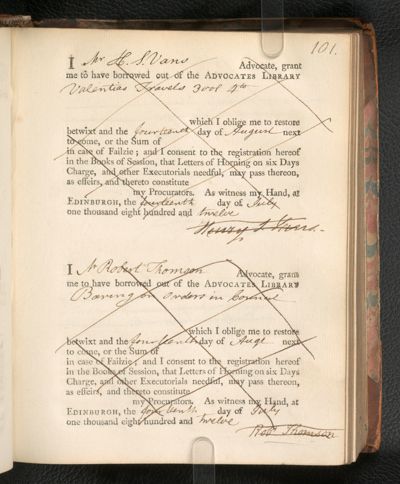 101.
I Mr H. S. Vans Advocate, grant
me to have borrowed out of the ADVOCATES LIBRARY
Valentias Travels 3 vol 4to
which I oblige me to restore
betwixt and the fourteenth day of August next
to come, or the Sum of
in case of Failzie; and I consent to the registration hereof
in the Books of Session, that Letters of Horning on six Days
Charge, and other Executorials needful, may pass thereon,
as effeirs, and thereto constitute
my Procurators. As witness my Hand, at
EDINBURGH, the fourteenth day of July
one thousand eight hundred and twelve
I Mr Robert Thomson Advocate, grant
me to have borrowed out of the ADVOCATES LIBRARY
Baring on Orders in Council
which I oblige me to restore
betwixt and the fourteenth day of Augt next
to come, or the Sum of
in case of Failzie; and I consent to the registration hereof
in the Books of Session, that Letters of Horning on six Days
Charge, and other Executorials needful, may pass thereon,
as effeirs, and thereto constitute
my Procurators. As witness my Hand, at
EDINBURGH, the fourteenth day of July
one thousand eight hundred and twelve
Robt Thomson